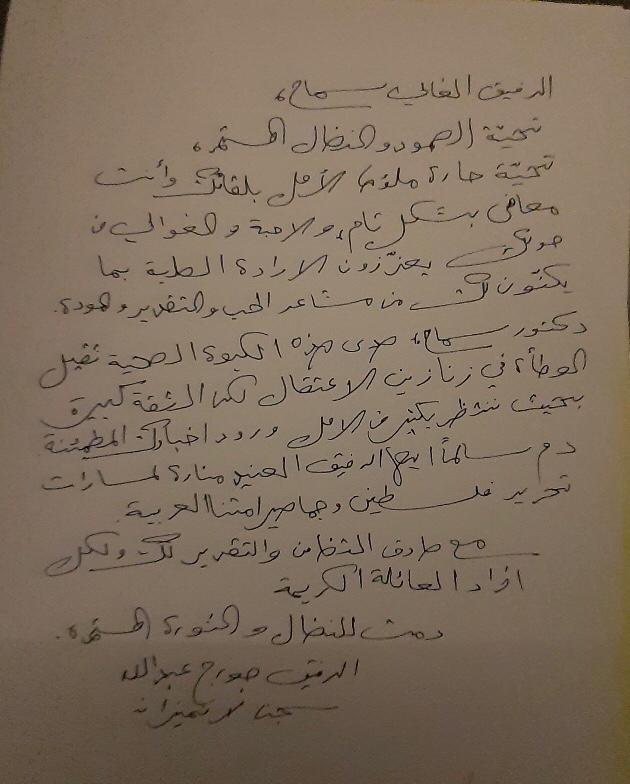 الرفيق الغالي سماح،
تحيّة الصمود والنضال المستمر،
تحيّة حارة ملؤها الأمل بلقائك وأنت
معافى بشكل تام، والاحبة والغوالي من
حولك يعزّزون الارادة الطيبة بما
يكنّون لك من مشاعر الحب والتقدير والمودة.
دكتور سماح، صدى هذه الكبوة الصحية ثقيل
الوطأة في زنازين الاعتقال لكن الثقة كبيرة
بحيث ننتظر بكثير من الامل ورود اخبارك المطمئنة
دم سالماً ايها الرفيق العنيد منارة لمسارات
تحرير فلسطين وجماهير امتنا العربية.
مع صادق التضامن والتقدير لك ولكل
افراد العائلة الكريمة
دمت للنضال والثورة المستمرة.
الرفيق جورج عبدالله
سجن لانميزان